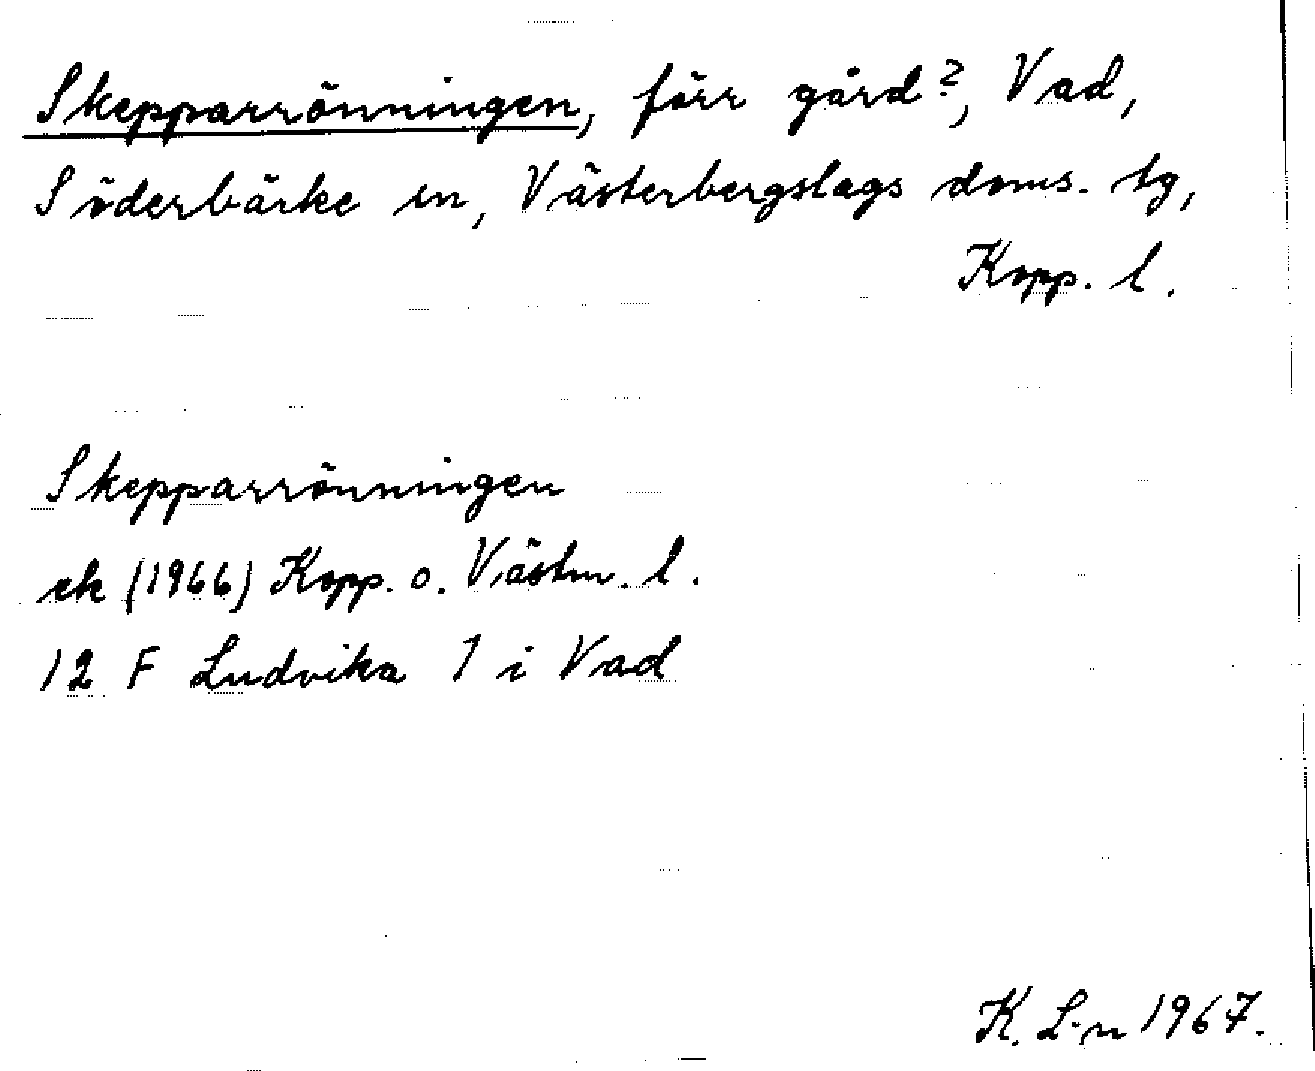 Skepparrönningen, förr gård?, Vad,
Söderbärke sn, Västerbergslags doms. tg,
Kopp. l.
Skepparrönningen
ek (1966) Kopp. o. Västm. l.
12 F Ludvika 7 i Vad
K. L-n 1967.